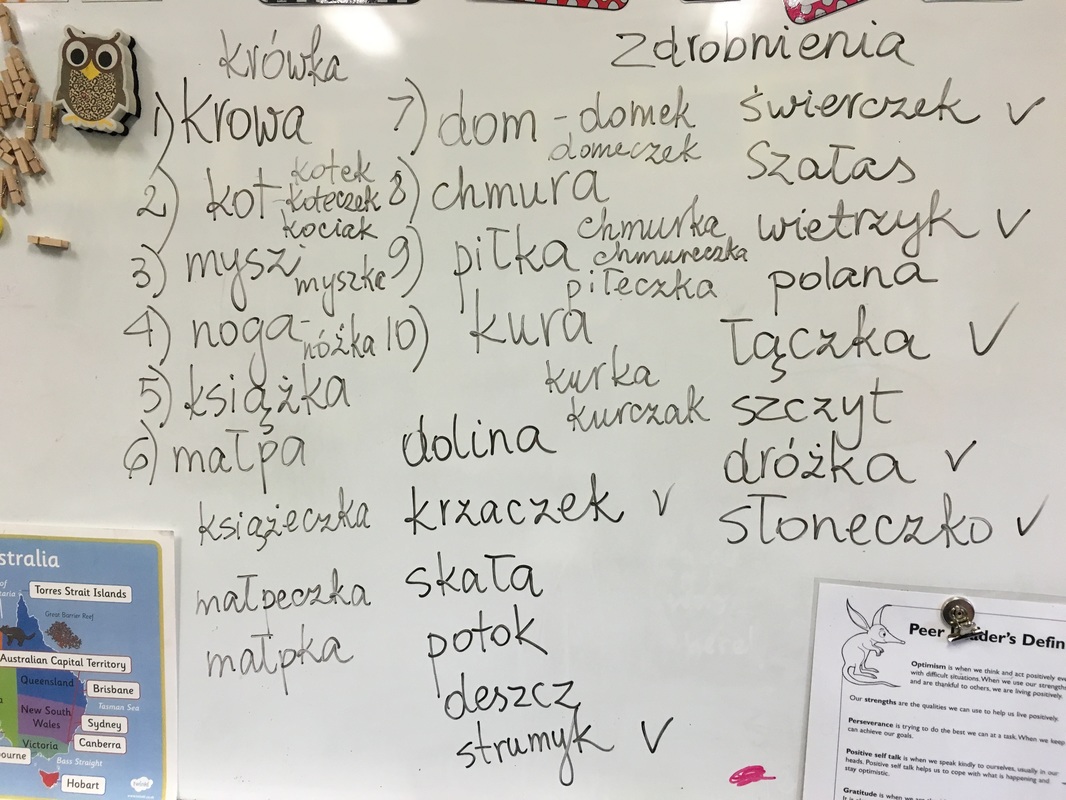 Zdrobnienia
krówka
1) krowa
2) kot - kotek
koteczek
kociak
3) mysz
myszka
4) noga - nóżka
5) książka
6) małpa
książeczka
małpeczka
małpka
7) dom - domek
domeczek
8) chmura
chmurka
chmureczka
9) piłka
piłeczka
10) kura
kurka
kurczak
dolina
krzaczek ✓
skała
potok
deszcz
strumyk ✓
świerczek ✓
Szałas
wietrzyk ✓
polana
łączka ✓
szczyt
dróżka ✓
słoneczko ✓
stralia
Torres Strait Islands
Great Barrier Reef
Australian Capital Territory
Queensland
Brisbane
Tasman Sea
New South
Wales
Sydney
Canberra
Victoria
ourne
Bass Straight
Hobart
Peer der's Defin
Optimism is when we think and act positively
with difficult situations. When we use our strengths
and are thankful to others, we are living positively.
Our strengths are the qualities we can use to help us live positively.
Perseverance is trying to do the best we can at a task. When we keep
can achieve our goals.
Positive self talk is when we speak kindly to ourselves, usually in our
heads. Positive self talk helps us to cope with what is happening and
stay optimistic.
Gratitude is when we